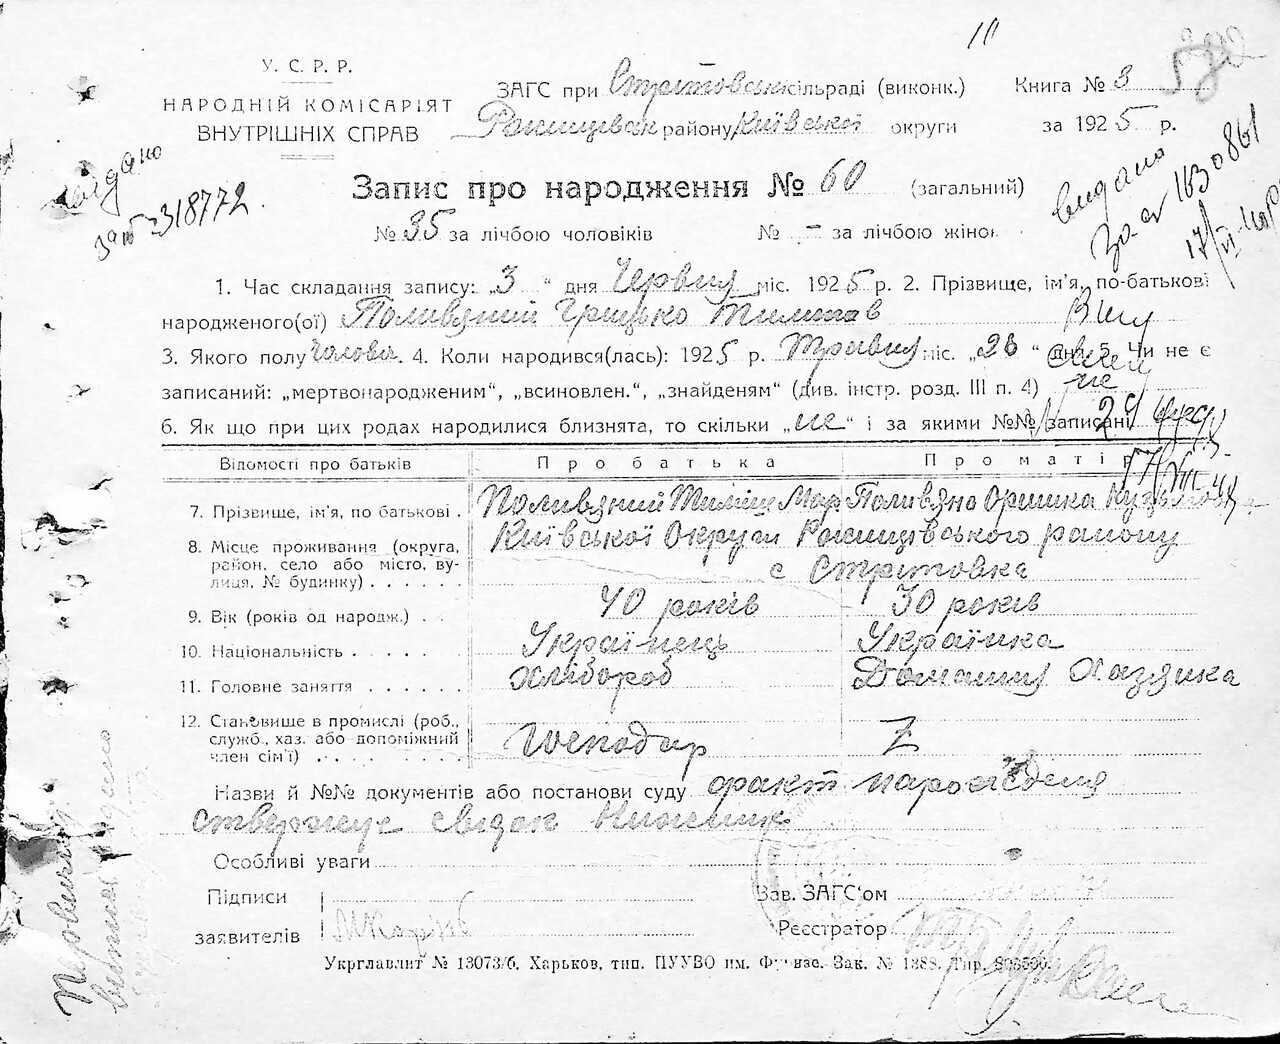 111
У. С. Р. Р.
НАРОДНІЙ КОМІСАРІЯТ
ВНУТРІШНІХ СПРАВ
ЗАГС при Стритовськ сільраді (виконк.) Книга № 3
району Київської округи за 1925 р.
видано
318772
видано
Запис про народження № 60 (загальний)
№ 35 за лічбою чоловіків № - за лічбою жінок
1. Час складання запису: „3" дня Червня міс. 1925 р. 2. Прізвище, ім'я, по-батькові
народженого(ої) Поливяний Грицько Тимішав
3. Якого полу Чолові. 4. Коли народився(лась): 1925 р. Травня міс. „26" дня 5. Чи не є
записаний: „мертвонародженим", „всиновлен.", „знайденям" (див. інстр. розд. III п. 4) не
6. Як що при цих родах народилися близнята, то скільки „не" і за якими №№ записані
Відомості про батьків Про батька Про матір
7. Прізвище, ім'я, по батькові . Поливяний Тиміш Мар Поливяна Оришка
8. Місце проживання (округа, район, село або місто, вулиця, № будинку) . . . . . . Київської Округи району
с Стритовка
9. Вік (років од народж.) . . 40 років 30 років
10. Національність . . . . . Українець Українка
11. Головне заняття . . . . . . Хлібороб Домашня Хазяйка
12. Становище в промислі (роб., служб., хаз. або допоміжний член сім'ї) . . . . . . . Господар
Назви й №№ документів або постанови суду факт народження
ствержує свідок
Особливі уваги
Підписи Зав. ЗАГС'ом
заявителів Реєстратор
Укрглавліт № 13073/б. Харьков, тип. ПУУВО им. Фрунзе. Зак. № 1388. Тир.